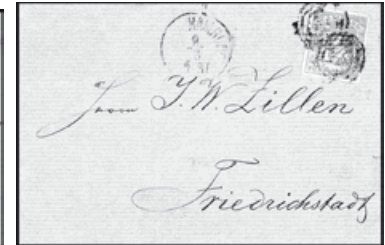 Herrn J. W. Zillen
Friedrichstadt